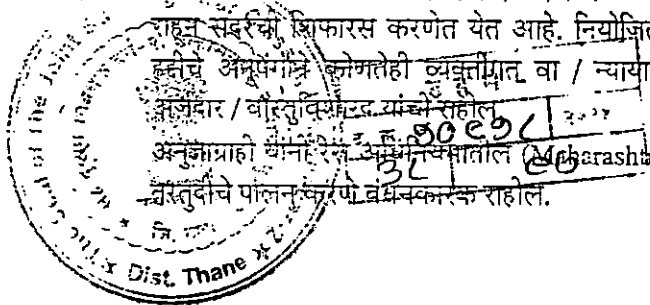 राहून सदरची शिफारस करणेत येत आहे. नियोजित
हद्दीचे अनुषंगाने कोणतेही व्यक्तीगत वा / न्याया
अर्जदार / वास्तुविशारद यांची राहील
अनुज्ञाग्राही यांनी रेरा अधिनियमातील (Maharasht
तरतुदीचे पालन करणे बंधनकारक राहील.
१०९७८
३८ ८०
The Seal of the Joint S
Dist. Thane